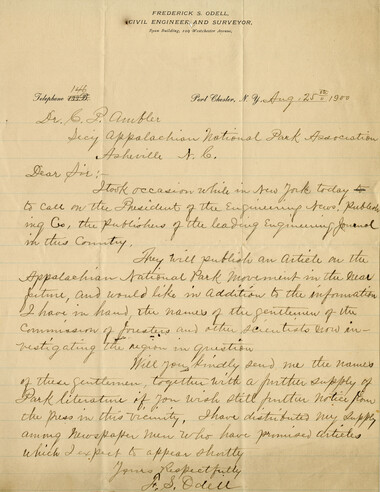 FREDERICK S. ODELL,
CIVIL ENGINEER AND SURVEYOR,
Opera Building, 129 Westchester Avenue,
Telephone
Port Chester, N. Y. Aug. 25th 1900
Dr. C. P. Ambler
Secy Appalachian National Park Association
Asheville N. C.
Dear Sir:-
I took occasion while in New York today to
to call on the President of the Engineering News Publish-
ing Co, the publishers of the leading Engineering Journal
in this Country.
They will publish an Article on the
Appalachian National Park Movement in the near
future, and would like in addition to the information
I have in hand, the names of the gentlemen of the
Commission of foresters and other scientists now in-
vestigating the region in question
Will you kindly send me the names
of these gentlemen, together with a further supply of
Park literature if you wish still further notice from
the press in this vicinity. I have distributed my supply
among Newspaper men who have promised articles
which I expect to appear shortly
Yours Respectfully
F. S. Odell